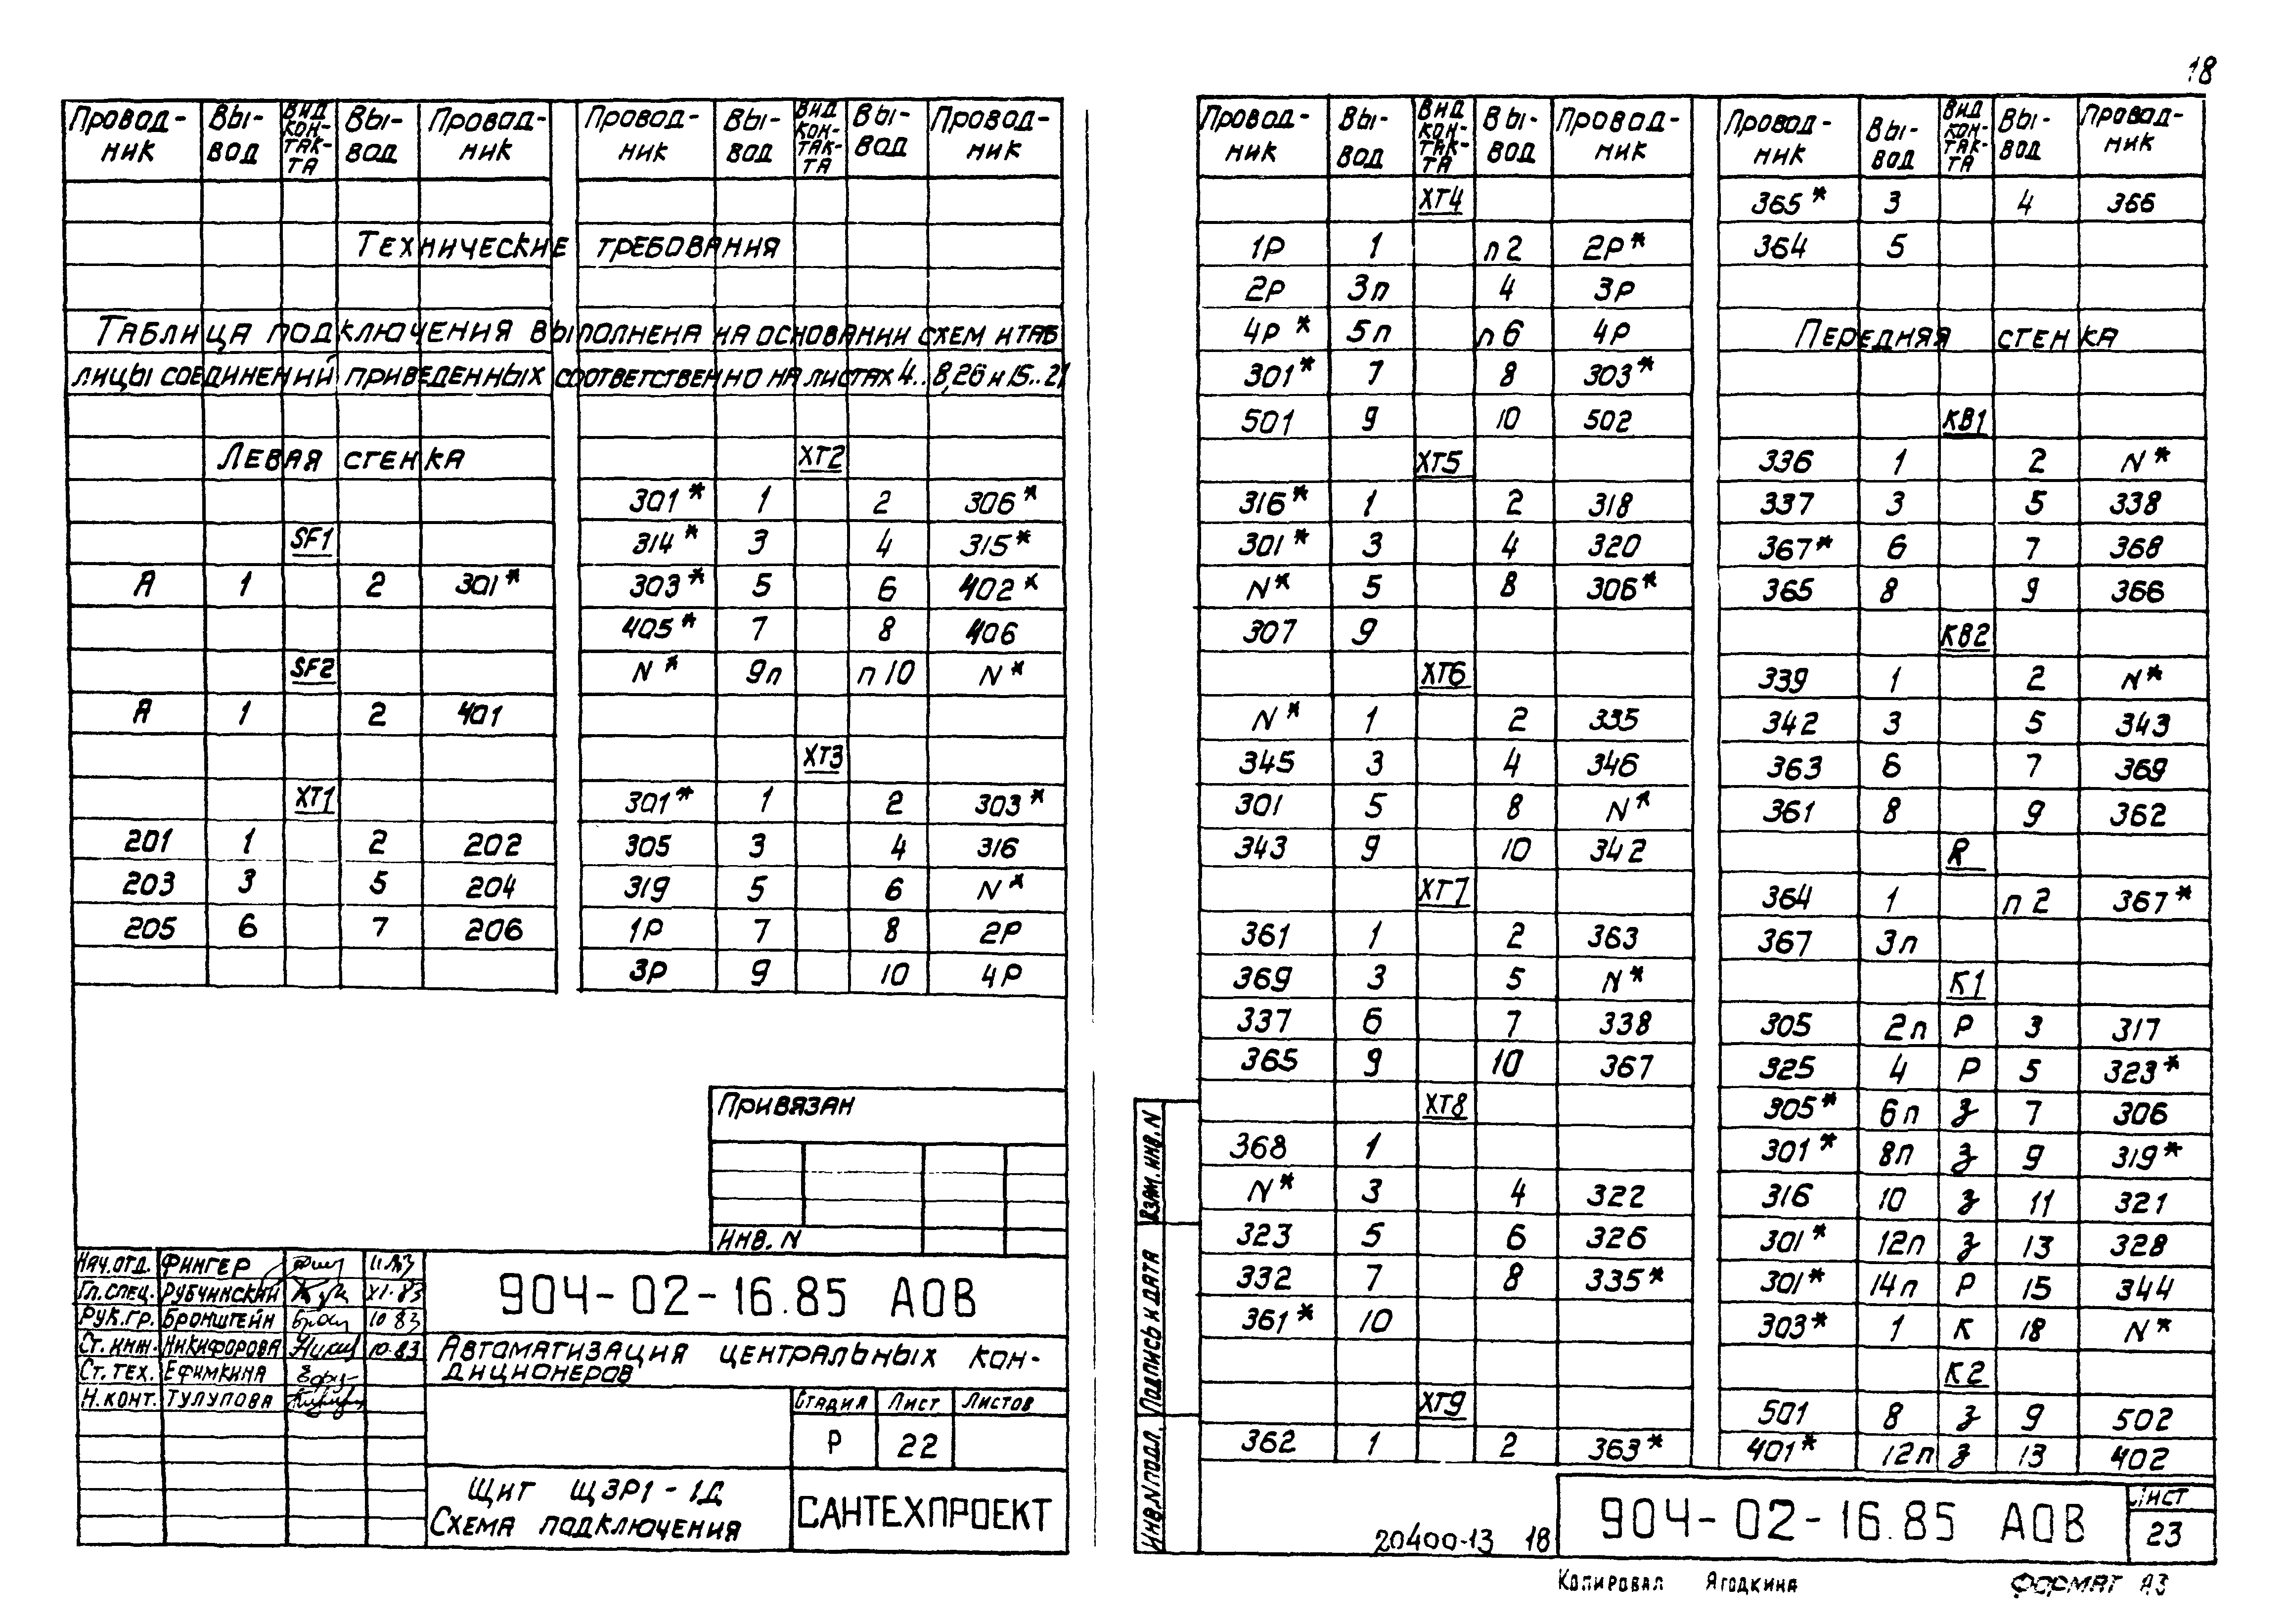 18
Провод-ник Вы-вод Вид кон-так-та Вы-вод Провод-ник
Технические требования
Таблица подключения выполнена на основании схем и таб
лицы соединений приведенных соответственно на листах 4..8,26 и 15..21
Левая стенка
SF1
А 1 2 301*
SF2
А 1 2 401
XT1
201 1 2 202
203 3 5 204
205 6 7 206
Провод-ник Вы-вод Вид кон-так-та Вы-вод Провод-ник
XT2
301* 1 2 306*
314* 3 4 315*
303* 5 6 402*
405* 7 8 406
N* 9п п10 N*
XT3
301* 1 2 303*
305 3 4 316
319 5 6 N*
1Р 7 8 2Р
3Р 9 10 4Р
Привязан
Инв. N
Нач.отд. Фингер 11.83
Гл.спец. Рубчинский XI.83
Рук.гр. Бронштейн 10 83
Ст.инж. Никифорова 10.83
Ст.тех. Ефимкина
Н.конт. Тулупова
904-02-16.85 АОВ
Автоматизация центральных кон-
диционеров
Стадия Лист Листов
Р 22
Щит ЩЗР1-1Д
Схема подключения
САНТЕХПРОЕКТ
Провод-ник Вы-вод Вид кон-так-та Вы-вод Провод-ник
XT4
1Р 1 п2 2Р*
2Р 3п 4 3Р
4Р* 5п п6 4Р
301* 7 8 303*
501 9 10 502
XT5
316* 1 2 318
301* 3 4 320
N* 5 8 306*
307 9
XT6
N* 1 2 335
345 3 4 346
301 5 8 N*
343 9 10 342
XT7
361 1 2 363
369 3 5 N*
337 6 7 338
365 9 10 367
XT8
368 1
N* 3 4 322
323 5 6 326
332 7 8 335*
361* 10
XT9
362 1 2 363*
Провод-ник Вы-вод Вид кон-так-та Вы-вод Провод-ник
365* 3 4 366
364 5
Передняя стенка
КВ1
336 1 2 N*
337 3 5 338
367* 6 7 368
365 8 9 366
КВ2
339 1 2 N*
342 3 5 343
363 6 7 369
361 8 9 362
R
364 1 п2 367*
367 3п
К1
305 2п Р 3 317
325 4 Р 5 323*
305* 6п З 7 306
301* 8п З 9 319*
316 10 З 11 321
301* 12п З 13 328
301* 14п Р 15 344
303* 1 К 18 N*
К2
501 8 З 9 502
401* 12п З 13 402
Взам. инв. N
Подпись и дата
Инв.N подл.
20400-13 18
904-02-16.85 АОВ
Лист
23
Копировал Ягодкина
Формат А3